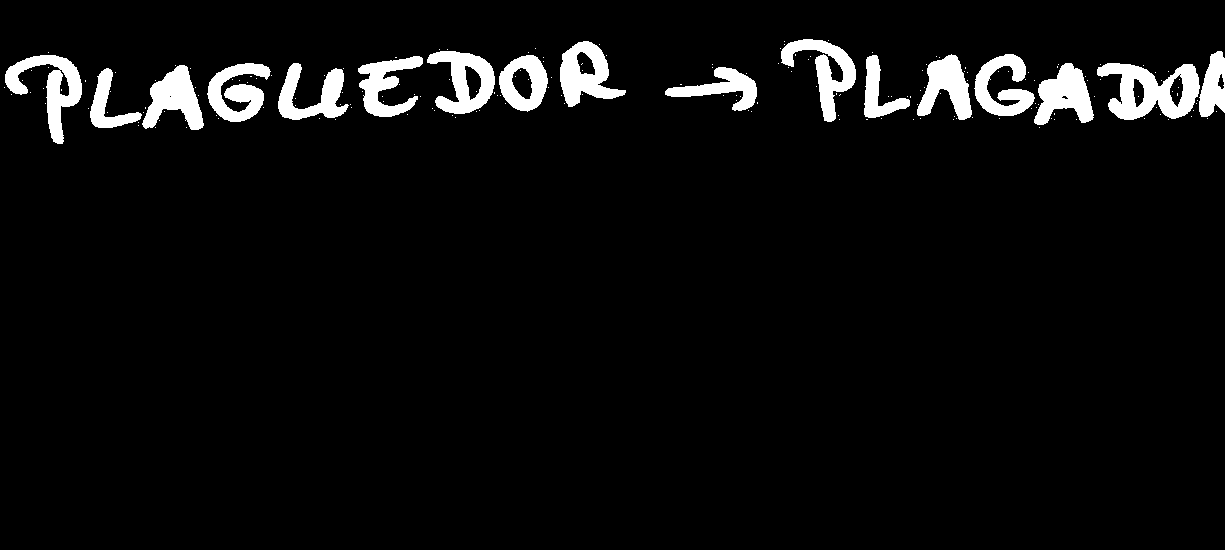 PLAGUEDOR → PLAGADOR